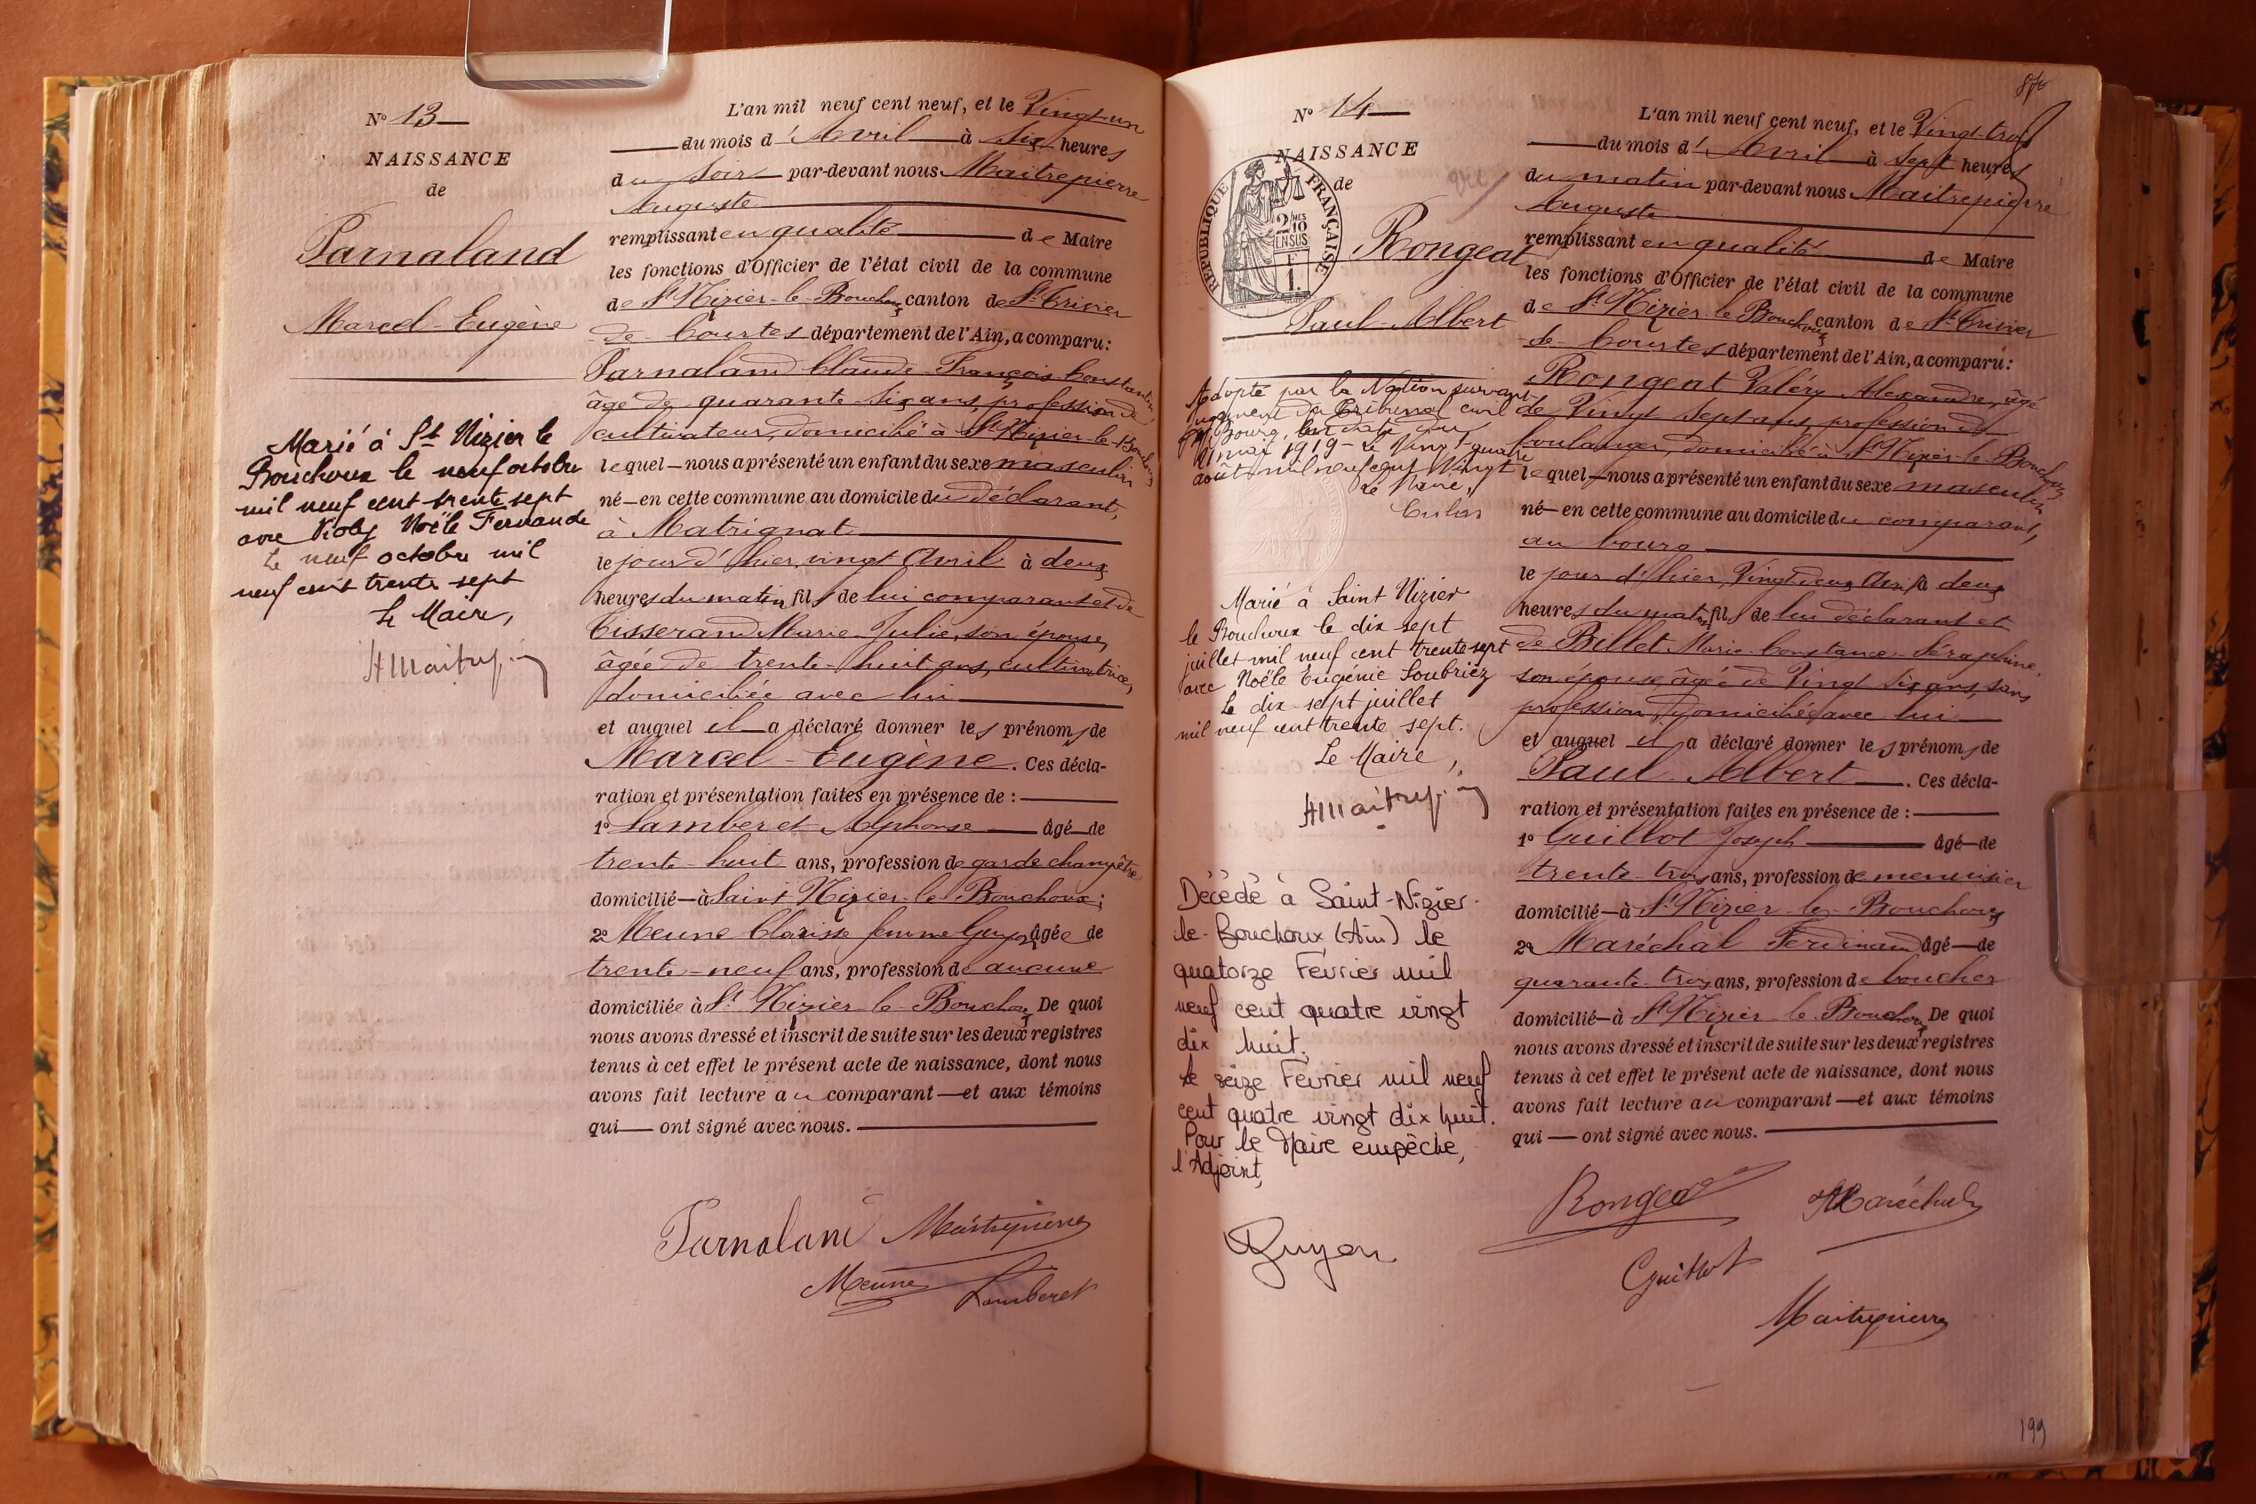 N° 13
NAISSANCE
de
Parnaland
Marcel-Eugène
Marié à St Nizier le
Bouchoux le neuf octobre
mil neuf cent trente sept
avec Noële Fernande
Le neuf octobre mil
neuf cent trente sept
Le Maire,
L'an mil neuf cent neuf, et le Vingt-un
du mois d'Avril à Six heures
du soir par-devant nous Maitrepierre
Auguste
remplissant en qualité de Maire
les fonctions d'Officier de l'état civil de la commune
de St Nizier-le-Bouchoux canton de St Trivier
de-Courtes département de l'Ain, a comparu:
Parnaland Claude-François-Constantin,
âgé de quarante-six ans, profession de
cultivateur, domicilié à St Nizier-le-Bouchoux
lequel nous a présenté un enfant du sexe masculin
né en cette commune au domicile du déclarant,
à Matrignat
le jour d'hier, vingt Avril à deux
heures du matin fils de lui comparant et de
Tisserand Marie-Julie, son épouse,
âgée de trente-huit ans, cultivatrice,
domiciliée avec lui
et auquel il a déclaré donner les prénoms de
Marcel-Eugène. Ces décla-
ration et présentation faites en présence de :
1° Lamberet Alphonse âgé de
trente-huit ans, profession de garde champêtre
domicilié à Saint Nizier-le-Bouchoux;
2° Meune Clarisse femme Guyon âgée de
trente-neuf ans, profession de aucune
domiciliée à St Nizier-le-Bouchoux De quoi
nous avons dressé et inscrit de suite sur les deux registres
tenus à cet effet le présent acte de naissance, dont nous
avons fait lecture au comparant et aux témoins
qui ont signé avec nous.
Parnaland Maitrepierre
Meune Lamberet
N° 14
NAISSANCE
de
RÉPUBLIQUE FRANÇAISE
2/10 MES
EN SUS
1F
Rongeat
Paul-Albert
Adopté par la Nation suivant
jugement du Tribunal civil
de Bourg, en date du
21 mai 1919 - Le Vingt-quatre
août mil neuf cent Vingt
Le Maire,
Marié à Saint Nizier
le Bouchoux le dix sept
juillet mil neuf cent trente sept
avec Noële Eugénie Loubriez
Le dix-sept juillet
mil neuf cent trente sept.
Le Maire,
Décédé à Saint-Nizier-
le-Bouchoux (Ain) le
quatorze Février mil
neuf cent quatre vingt
dix huit.
Le seize Février mil neuf
cent quatre vingt dix huit.
Pour le Maire empêché,
l'Adjoint,
Guyon
L'an mil neuf cent neuf, et le Vingt-trois
du mois d'Avril à sept heures
du matin par-devant nous Maitrepierre
Auguste
remplissant en qualité de Maire
les fonctions d'Officier de l'état civil de la commune
de St Nizier-le-Bouchoux canton de St Trivier
de-Courtes département de l'Ain, a comparu:
Rongeat Valéry Alexandre, âgé
de Vingt sept ans, profession de
boulanger, domicilié à St Nizier-le-Bouchoux
lequel nous a présenté un enfant du sexe masculin
né en cette commune au domicile du comparant,
au bourg
le jour d'hier, Vingt deux Avril à deux
heures du matin fils de lui déclarant et
de Billet Marie-Constance-Séraphine,
son épouse, âgée de Vingt six ans, sans
profession, domiciliée avec lui
et auquel il a déclaré donner les prénoms de
Paul-Albert. Ces décla-
ration et présentation faites en présence de :
1° Guillot Joseph âgé de
trente-trois ans, profession de menuisier
domicilié à St Nizier-le-Bouchoux
2° Maréchal Ferdinand âgé de
quarante-trois ans, profession de boucher
domicilié à St Nizier-le-Bouchoux De quoi
nous avons dressé et inscrit de suite sur les deux registres
tenus à cet effet le présent acte de naissance, dont nous
avons fait lecture au comparant et aux témoins
qui ont signé avec nous.
Rongeat Maréchal
Guillot
Maitrepierre
199